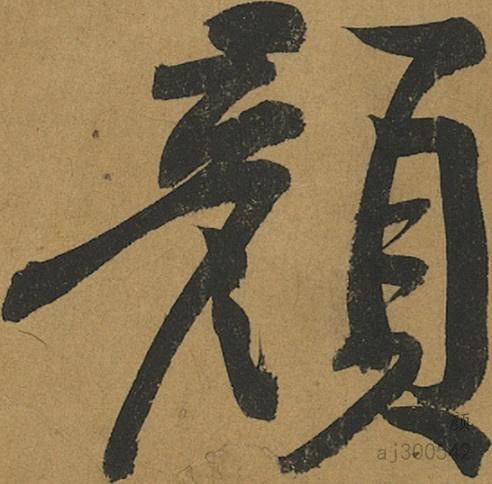 顏
颜
aj300542